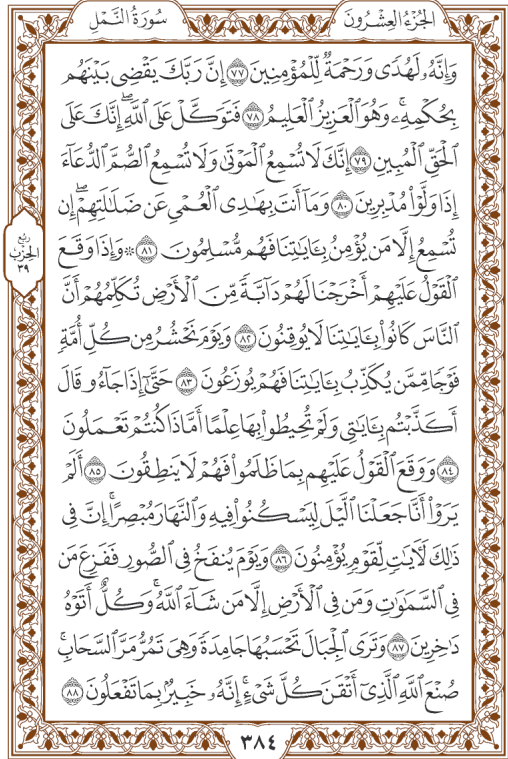 الجُزْءُ العِشْرُونَ
سُورَةُ النَّمْلِ
وَإِنَّهُۥ لَهُدًى وَرَحْمَةٌ لِّلْمُؤْمِنِينَ ۝٧٧ إِنَّ رَبَّكَ يَقْضِى بَيْنَهُم
بِحُكْمِهِۦۚ وَهُوَ ٱلْعَزِيزُ ٱلْعَلِيمُ ۝٧٨ فَتَوَكَّلْ عَلَى ٱللَّهِۖ إِنَّكَ عَلَى
ٱلْحَقِّ ٱلْمُبِينِ ۝٧٩ إِنَّكَ لَا تُسْمِعُ ٱلْمَوْتَىٰ وَلَا تُسْمِعُ ٱلصُّمَّ ٱلدُّعَآءَ
إِذَا وَلَّوْا۟ مُدْبِرِينَ ۝٨٠ وَمَآ أَنتَ بِهَٰدِى ٱلْعُمْىِ عَن ضَلَٰلَتِهِمْۖ إِن
تُسْمِعُ إِلَّا مَن يُؤْمِنُ بِـَٔايَٰتِنَا فَهُم مُّسْلِمُونَ ۝٨١ ۞ وَإِذَا وَقَعَ
ٱلْقَوْلُ عَلَيْهِمْ أَخْرَجْنَا لَهُمْ دَآبَّةً مِّنَ ٱلْأَرْضِ تُكَلِّمُهُمْ أَنَّ
ٱلنَّاسَ كَانُوا۟ بِـَٔايَٰتِنَا لَا يُوقِنُونَ ۝٨٢ وَيَوْمَ نَحْشُرُ مِن كُلِّ أُمَّةٍ
فَوْجًا مِّمَّن يُكَذِّبُ بِـَٔايَٰتِنَا فَهُمْ يُوزَعُونَ ۝٨٣ حَتَّىٰٓ إِذَا جَآءُو قَالَ
أَكَذَّبْتُم بِـَٔايَٰتِى وَلَمْ تُحِيطُوا۟ بِهَا عِلْمًا أَمَّاذَا كُنتُمْ تَعْمَلُونَ
۝٨٤ وَوَقَعَ ٱلْقَوْلُ عَلَيْهِم بِمَا ظَلَمُوا۟ فَهُمْ لَا يَنطِقُونَ ۝٨٥ أَلَمْ
يَرَوْا۟ أَنَّا جَعَلْنَا ٱلَّيْلَ لِيَسْكُنُوا۟ فِيهِ وَٱلنَّهَارَ مُبْصِرًاۚ إِنَّ فِى
ذَٰلِكَ لَـَٔايَٰتٍ لِّقَوْمٍ يُؤْمِنُونَ ۝٨٦ وَيَوْمَ يُنفَخُ فِى ٱلصُّورِ فَفَزِعَ مَن
فِى ٱلسَّمَٰوَٰتِ وَمَن فِى ٱلْأَرْضِ إِلَّا مَن شَآءَ ٱللَّهُۚ وَكُلٌّ أَتَوْهُ
دَٰخِرِينَ ۝٨٧ وَتَرَى ٱلْجِبَالَ تَحْسَبُهَا جَامِدَةً وَهِىَ تَمُرُّ مَرَّ ٱلسَّحَابِۚ
صُنْعَ ٱللَّهِ ٱلَّذِىٓ أَتْقَنَ كُلَّ شَىْءٍۚ إِنَّهُۥ خَبِيرٌۢ بِمَا تَفْعَلُونَ ۝٨٨
رُبْع
الحِزْب
٣٩
٣٨٤